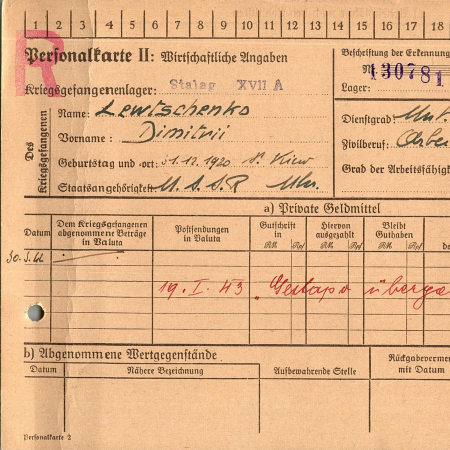 1 2 3 4 5 6 7 8 9 10 11 12 13 14 15 16 17 18
R
Personalkarte II: Wirtschaftliche Angaben
Kriegsgefangenenlager: Stalag XVII A
Beschriftung der Erkennung
Nr. 130781
Lager:
Des Kriegsgefangenen
Name: Lewtschenko
Vorname: Dimitrii
Geburtstag und -ort: 31.12.1920 Kiew
Staatsangehörigkeit: U.S.S.R Ukr.
Dienstgrad:
Zivilberuf:
Grad der Arbeitsfähig
a) Private Geldmittel
Datum
Dem Kriegsgefangenen abgenommene Beträge in Valuta
Postsendungen in Valuta
Gutschrift in RM Rpf
Hiervon ausgezahlt RM Rpf
Bleibt Guthaben RM Rpf
de
30.5.42
19. I. 43 "Gestapo überge
b) Abgenommene Wertgegenstände
Datum
Nähere Bezeichnung
Aufbewahrende Stelle
Rückgabeverme
mit Datum
Personalkarte 2